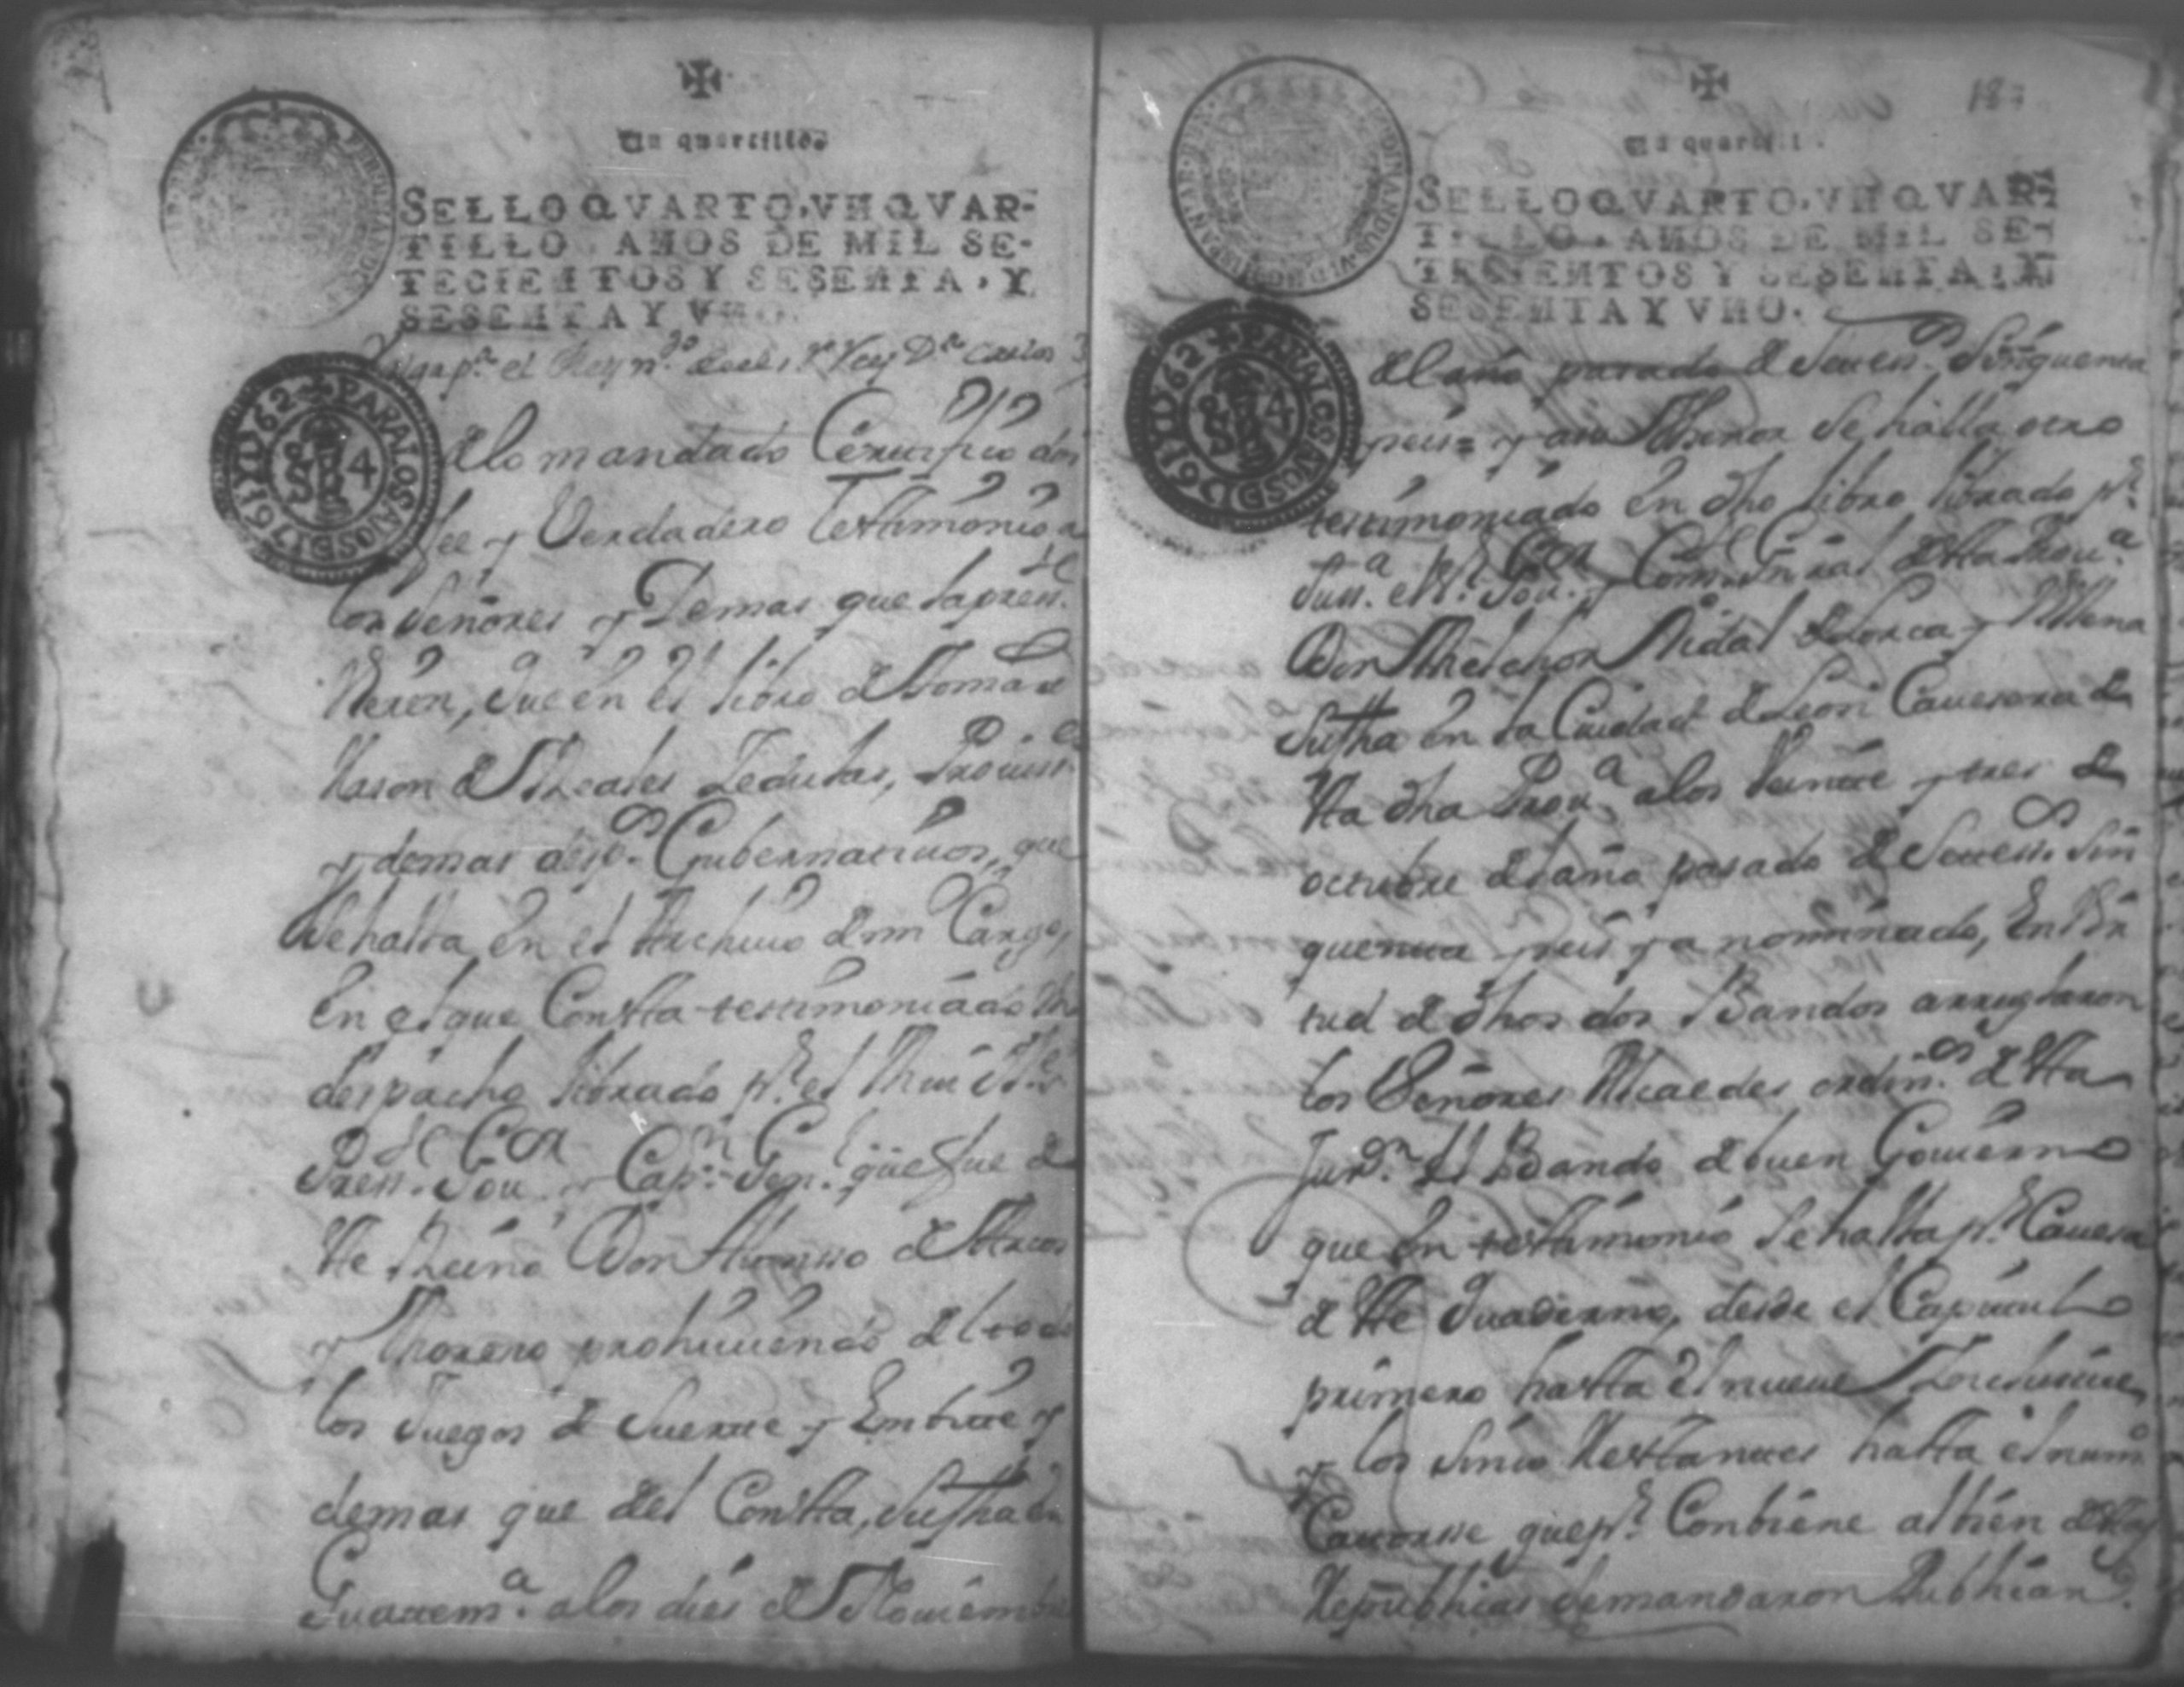 Un quartillo
SELLO QVARTO, VN QVAR-
TILLO, AÑOS DE MIL SE-
TECIENTOS Y SESENTA, Y
SESENTA Y VNO.
Valga pa. el Reyno. de el Sr. Rey Dn. Carlos 3
PARA LOS AÑOS D 1761 Y D 62
de lo mandado Certifico doi
fee y Verdadero Testimonio a
los Señores y Demas que la press.te
Vieren, que en el libro de Toma de
Rason de Reales Zedulas, Provis.es
y demas desp.os Gubernativos, que
Se halla en el Archivo de mi Cargo,
en el que Constta testimoniado Un
despacho librado pr. el Mui Itt.e Sr.
Press.te Gov.or y Cap.n Gen.l que fue de
tte Reino Don Alonsso de Arcos
y Moreno prohiviendo de todo
los Juegos de Suertte y Envitte y
demas que del Constta, Su fha en
Guattem.a a los dies de Noviembre
187
Un quartill
SELLO QVARTO, VN QVAR-
TILLO, AÑOS DE MIL SE-
TECIENTOS Y SESENTA, Y
SESENTA Y VNO.
PARA LOS AÑOS D 1761 Y D 62
del año pasado de Setess.os Sinquenta
y seis= y a su Thenor Se halla otro
testimoniado en dho libro librado pr.
Su Sr.a el Sr. Gov.or y Com.te Gral de tta Prov.a
Don Melchor Vidal de Lorca y Villena
Su fha en la Ciudad de Leon Cavesera de
tta dha Prov.a a los Veintte y tres de
octtubre del año pasado de Setess.os Sin
quentta y seis ya nominado, En Vir
tud de dhos dos Bandos arreglaron
los Señores Alcaldes ordin.os de tta
Jur.on el Bando de buen Govierno
que en testtimonio Se halla pr. Cavesa
de tte Quaderno, desde el Capitulo
primero hastta el nueve Ynclusive
y los Sinco Resttantes hastta el num.o
Cattorsse que pr. Conbiene al bien de tta
Republica Se mandaron Publicar.